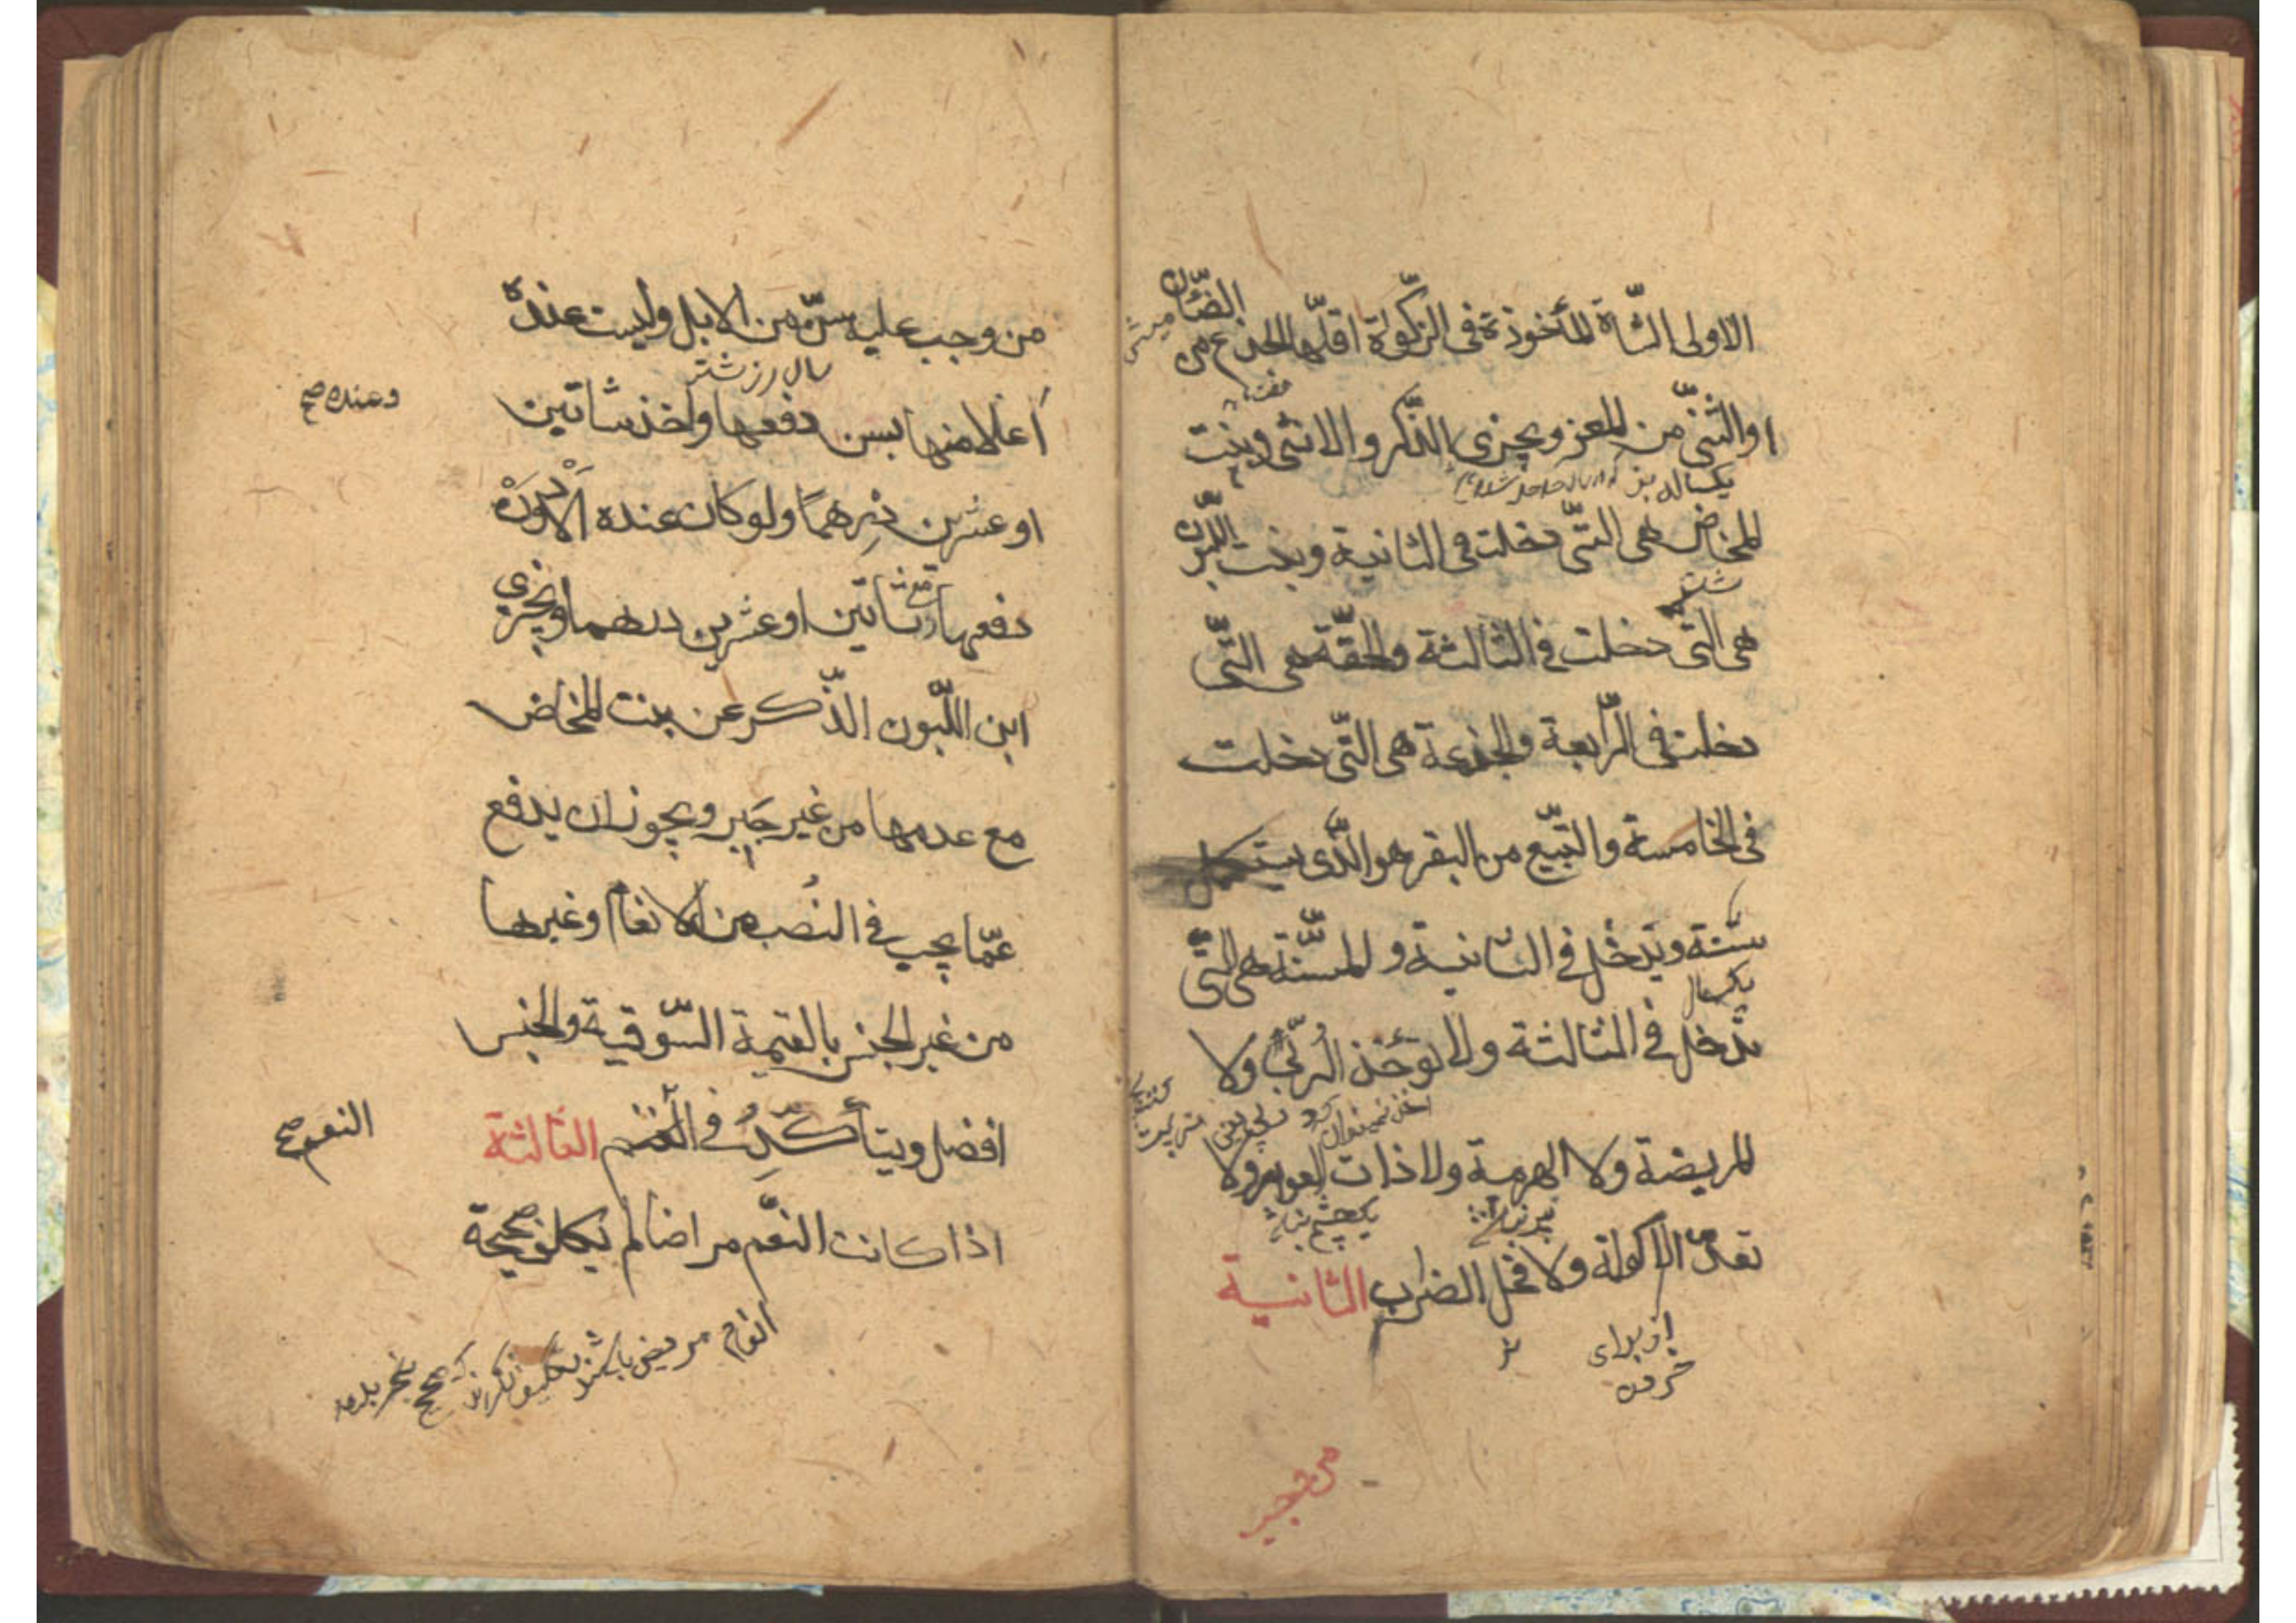 الاولى الشّاة المأخوذة فى الزّكوة اقلّها الجذع من الضّأن
ميش
او الثّنىّ من المعز و يجزى الذّكر و الانثى و بنت
يكساله بز
المخاض هى التّى دخلت فى الثانية و بنت اللّبون
شتر
هى التّى دخلت فى الثّالثة و الحقّة هى التّى
دخلت فى الرّابعة و الجذعة هى التّى دخلت
فى الخامسة و التّبيع من البقر هو الّذى يستكمل
سنة و يدخل فى الثانية و المسنّة هى التّى
يكسال
تدخل فى الثالثة و لا تؤخذ الرّبّى و لا
المريضة و لا الهرمة و لا ذات العوار و لا
پير نباشد
يكچشم نباشد
تعدّ الاكولة و لا فحل الضراب الثانية
از براى
خوردن
نر
من وجب عليه سنّ من الابل و ليست عنده
وعنده صح
أعلا منها بسن دفعها و اخذ شاتين
او عشرين درهمًا و لو كان عنده الادْوَنْ
دفعها مع شاتين او عشرين درهما و يجزى
ابن اللّبون الذّكر عن بنت المخاض
مع عدمها من غير جَبر و يجوز ان يدفع
عمّا يجب فى النُصب من الانعام و غيرها
من غير الجنس بالقيمة السّوقية و الجنس
افضل و يتأكّدُ فى الغنم الثالثة
النعم صح
اذا كانت النعّم مراضا لم يكلف صحيحة
انعام مريض باشند تكليف نكردند كه صحيح بخر بدهد